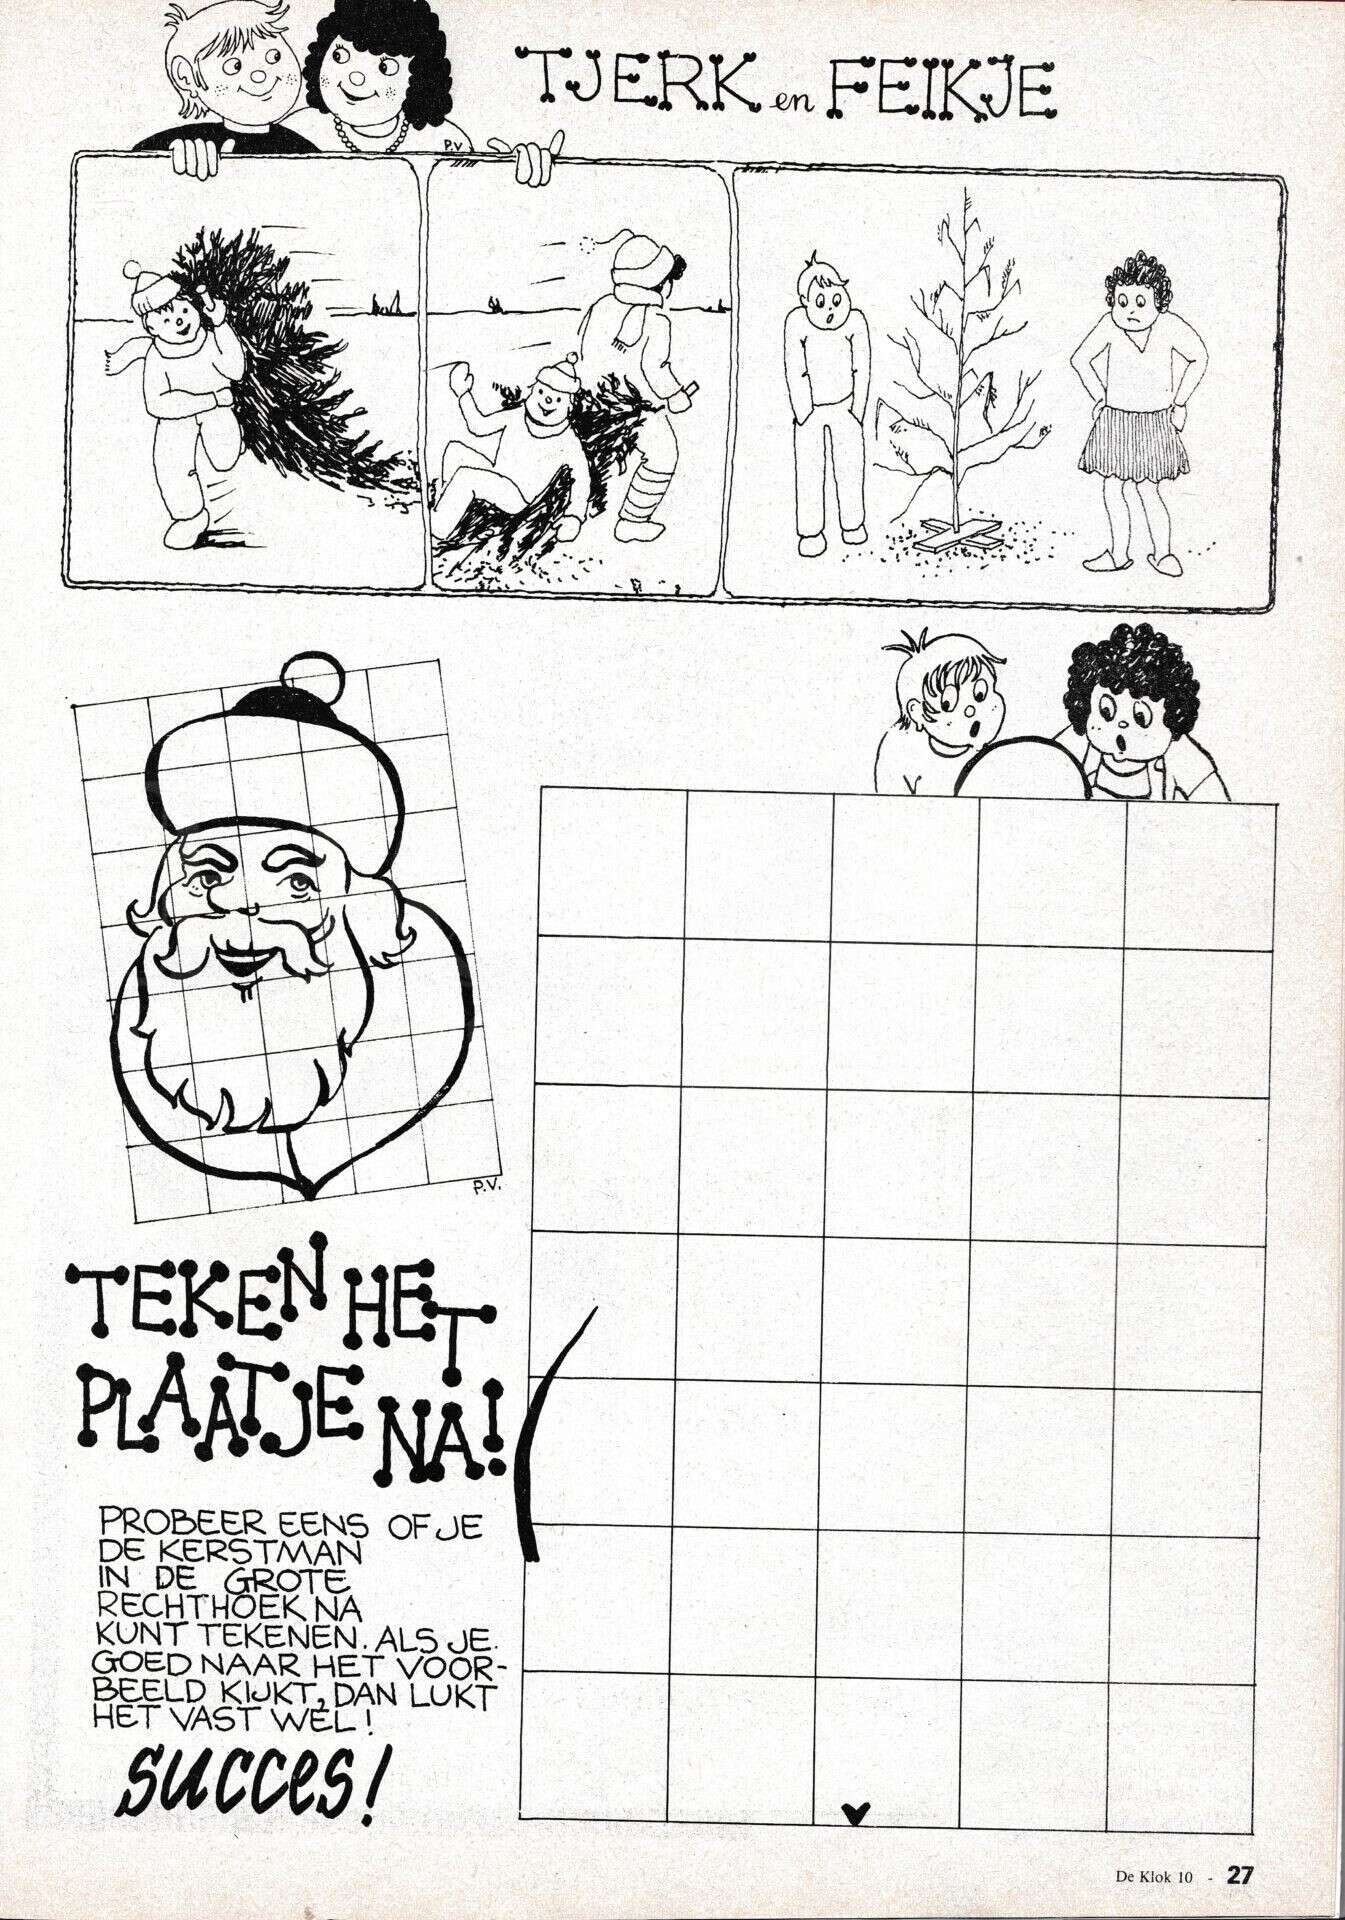 TJERK en FEIKJE
P.V
P.V.
TEKEN HET
PLAATJE NA!
PROBEER EENS OF JE
DE KERSTMAN
IN DE GROTE
RECHTHOEK NA
KUNT TEKENEN. ALS JE
GOED NAAR HET VOOR-
BEELD KIJKT, DAN LUKT
HET VAST WEL!
succes!
De Klok 10 - 27